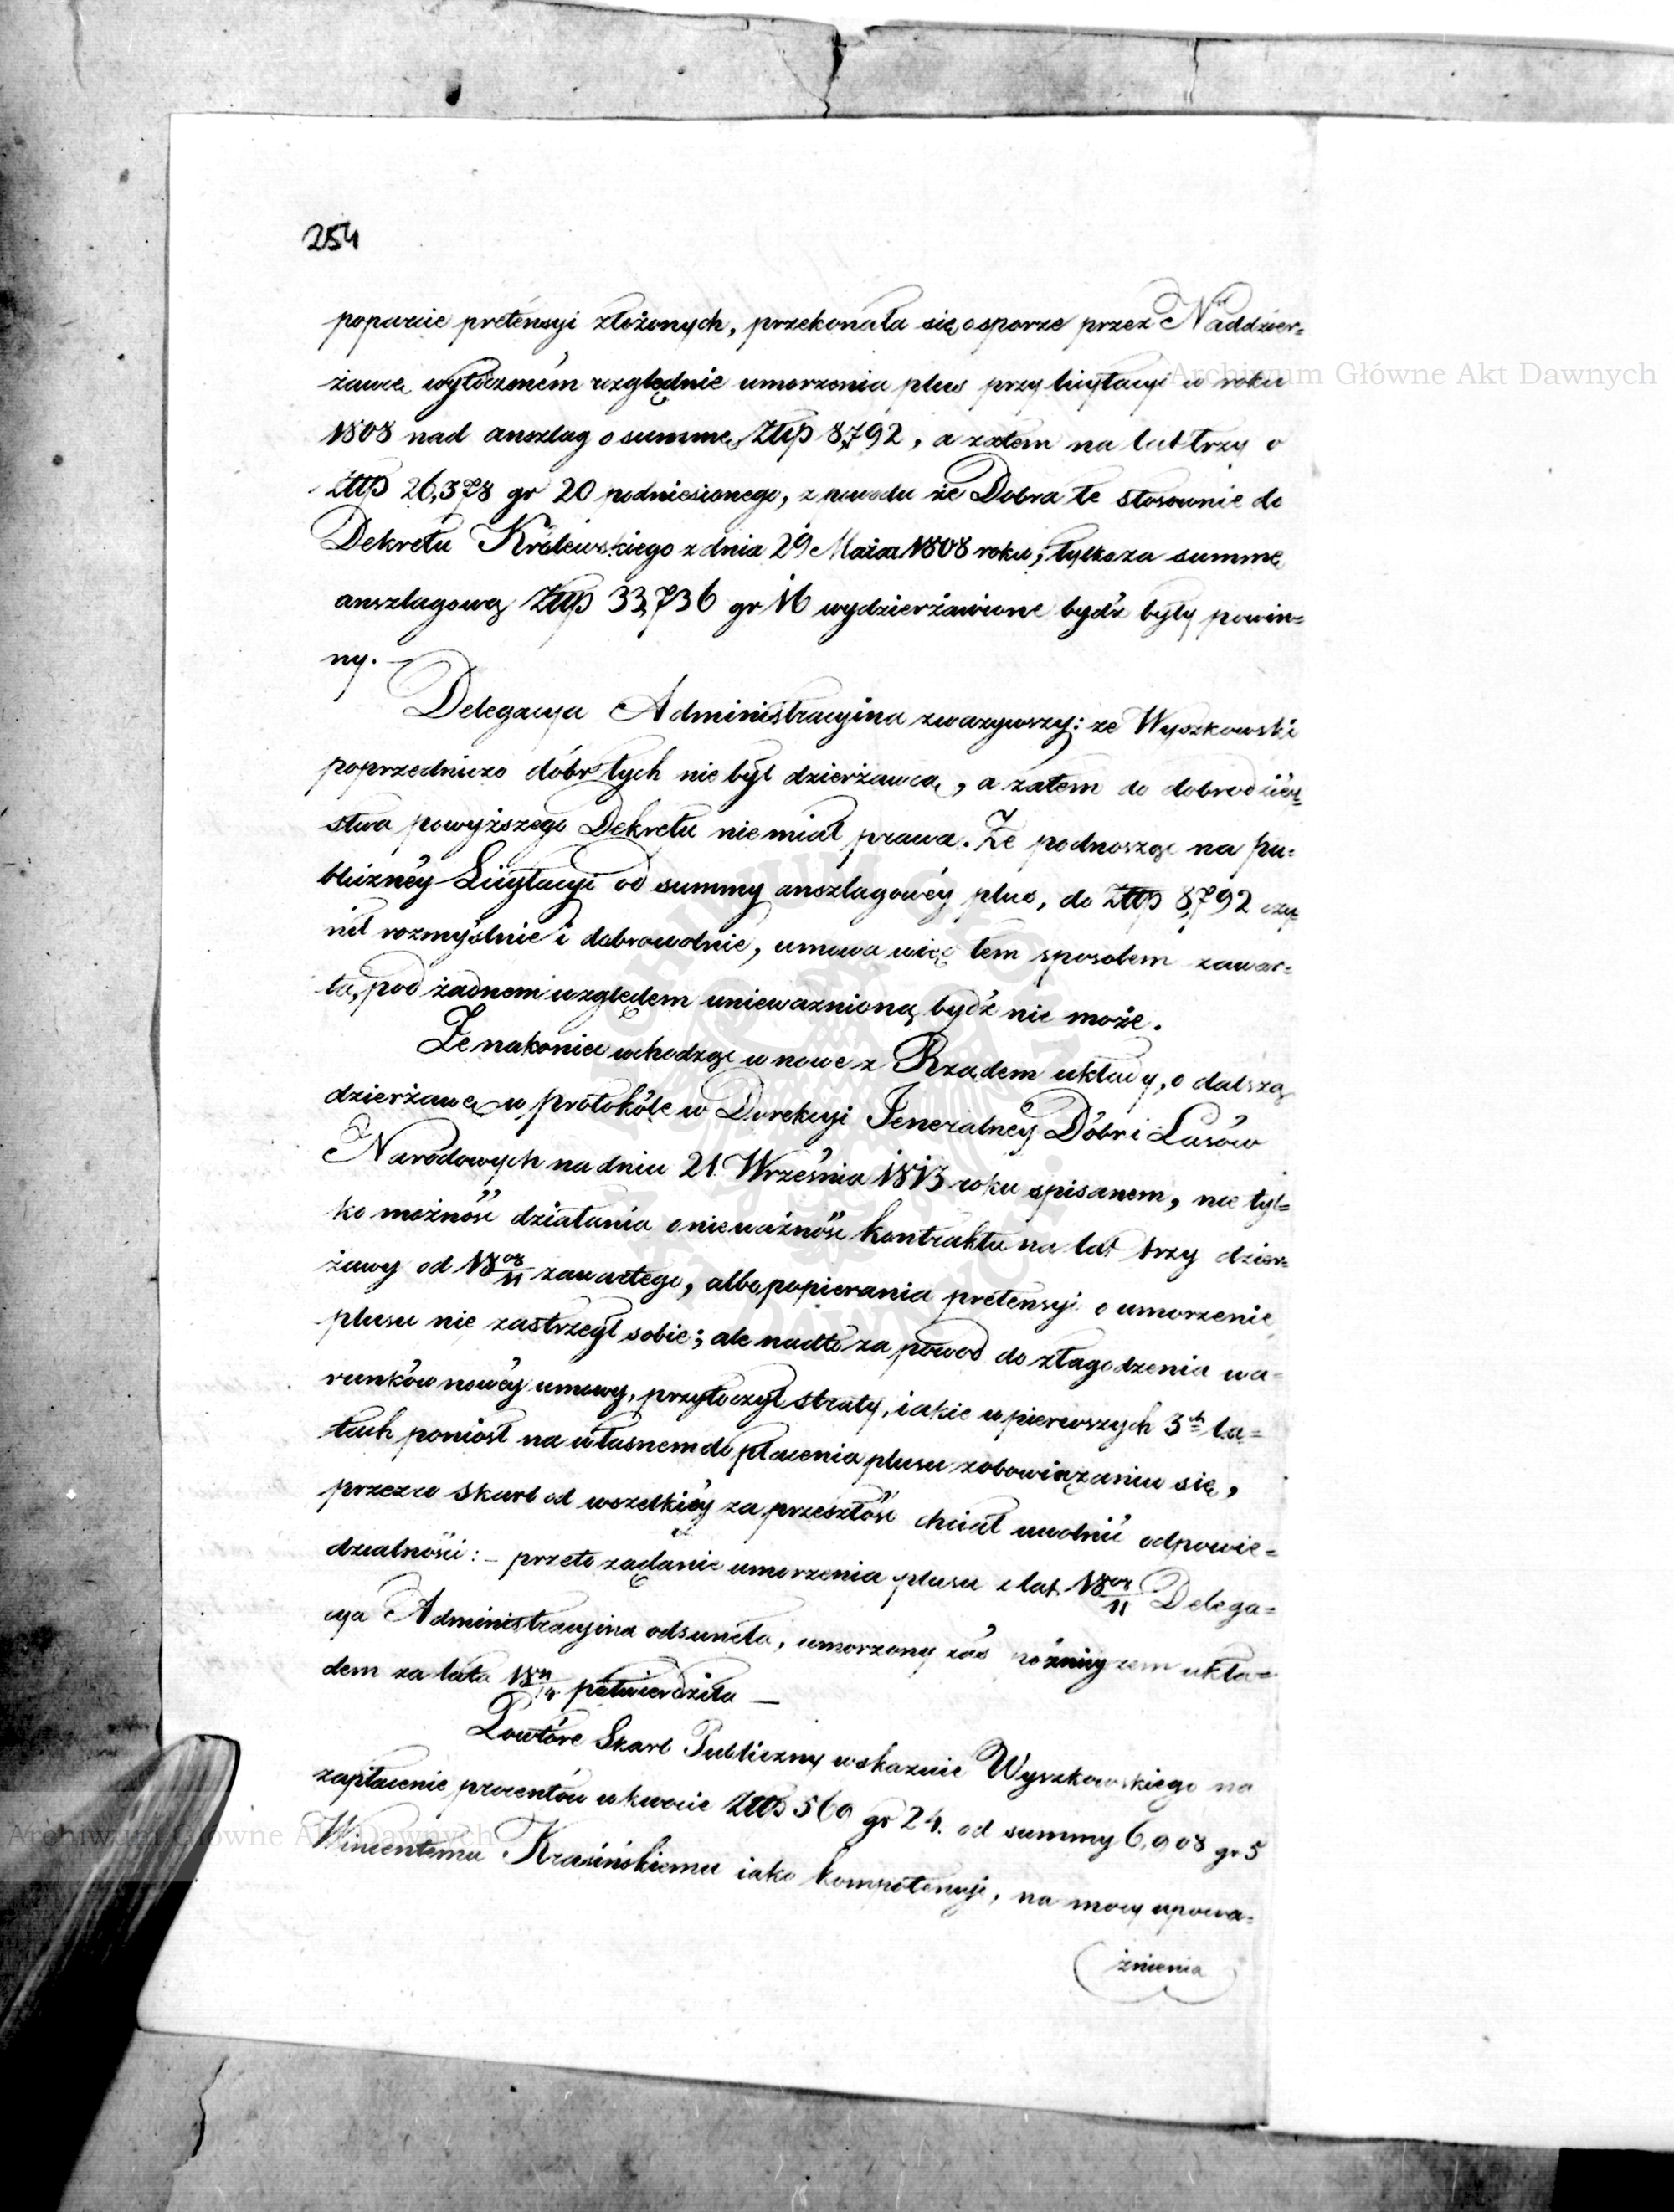 254
poparcie pretensyi złożonych, przekonała się o sporze przez Naddzier=
żawcę wytoczoném względnie umorzenia plus przy licytacyi w roku
1808 nad anszlag o summę Złłp 8,792, a zatem na lat trzy o
Złłp 26,378 gr 20 podniesionego, z powodu że Dobra te stosownie do
Dekretu Królewskiego z dnia 29 Maia 1808 roku, tylko za summę
anszlagową Złłp 33,736 gr 16 wydzierżawione bydź były powin=
ny. —
Delegacya Administracyina zważywszy: że Wyszkowski
poprzedniczo dóbr tych nie był dzierżawcą, a zatem do dobrodziey=
stwa powyższego Dekretu nie miał prawa. Że podnosząc na pu=
bliczney Licytacyi od summy anszlagowéy plus, do Złłp 8,792 czy=
nił rozmyślnie i dobrowolnie, umowa więc tem sposobem zawar=
ta, pod żadnem względem unieważnioną bydź nie może.
Że nakoniec wchodząc w nowe z Rządem układy, o dalszą
dzierżawę w protokóle w Dyrekcyi Jeneralnéy Dóbr i Lasów
Narodowych na dniu 21. Września 1813 roku spisanem, nie tyl=
ko możność działania o nieważność kontraktu na lat trzy dzier=
żawy od 18 08/11 zawartego, albo popierania pretensyi o umorzenie
plusu nie zastrzegł sobie; ale nadto za powod do złagodzenia wa=
runków nowéy umowy, przytoczył straty, iakie w pierwszych 3ch la=
tach poniosł na własnem do płacenia plusu zobowiązaniu się,
przezco skarb od wszelkiéy za przeszłość chciał uwolnić odpowie=
dzialności: – przeto żądanie umorzenia plusu z lat 18 08/11 Delega=
cya Administracyina odsunęła, umorzony zaś późnieyszem ukła=
dem za lata 18 11/14 potwierdziła —
Powtóre Skarb Publiczny wskazuie Wyszkowskiego na
zapłacenie procentów w kwocie Złłp 560 gr 24. od summy 6,908 gr 5
Wincentemu Krasińskiemu iako kompetencyi, na mocy upowa=
żnienia
Archiwum Główne Akt Dawnych
Archiwum Główne Akt Dawnych